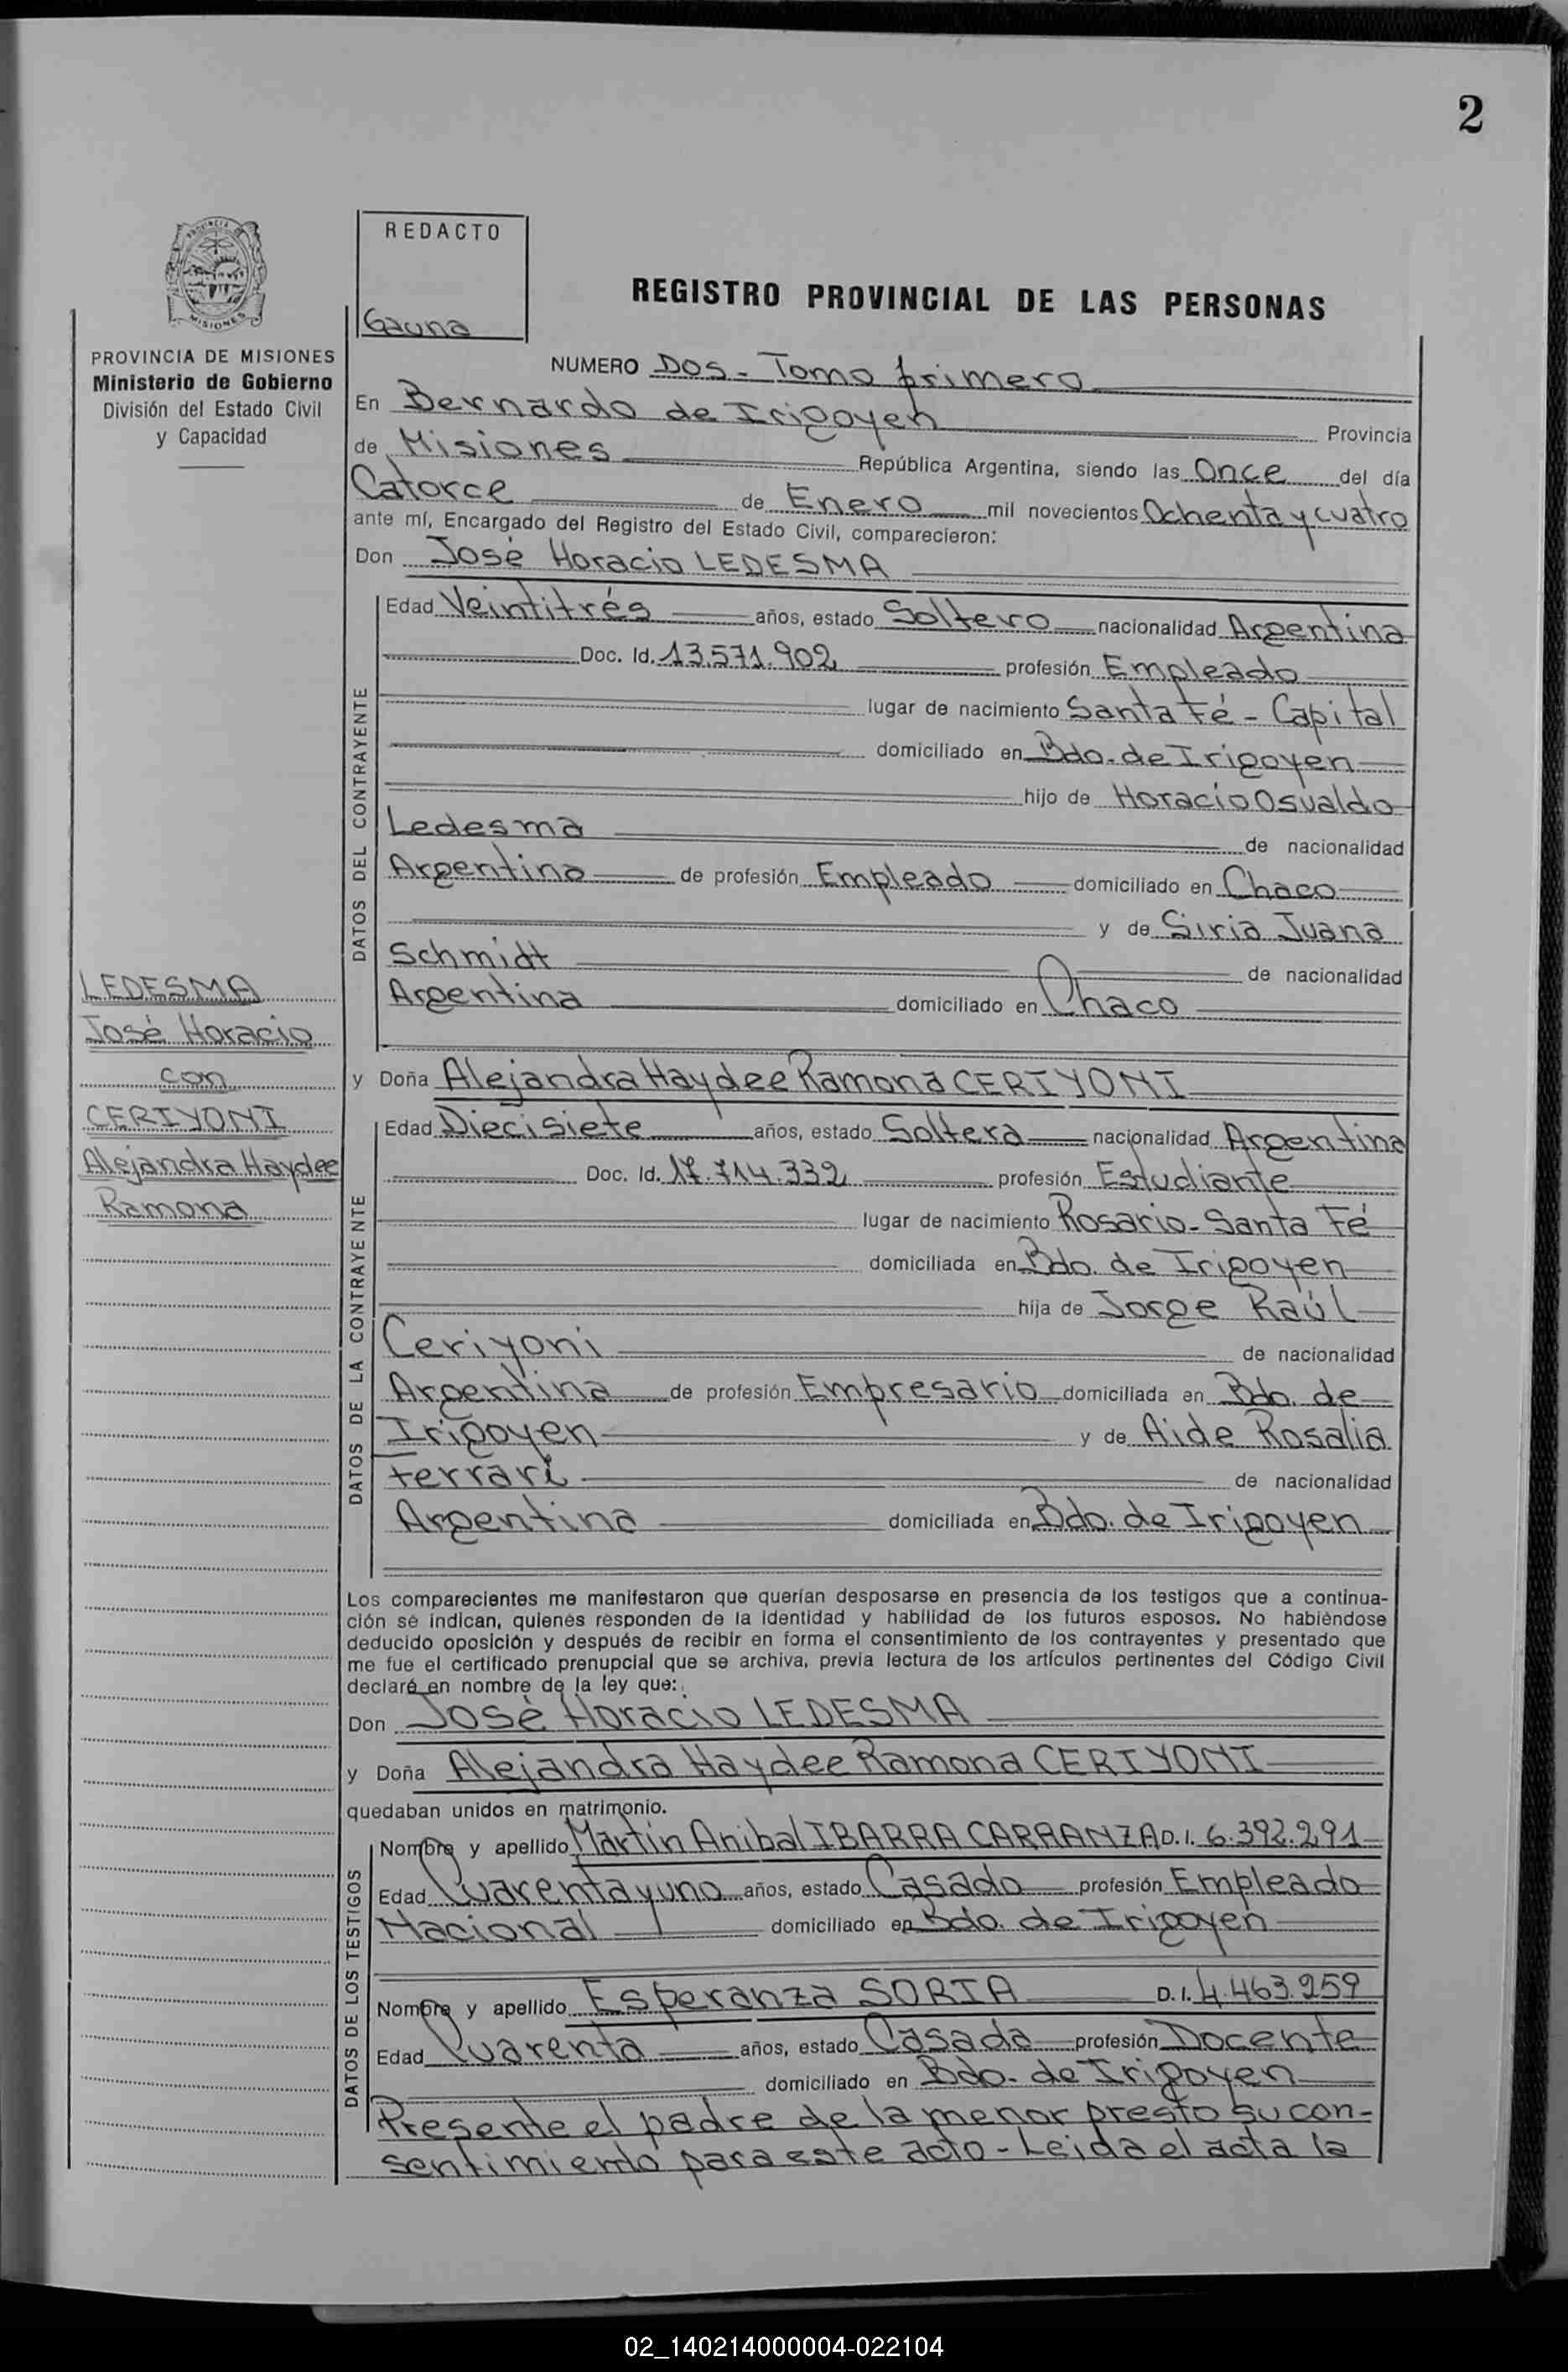 2
REDACTO
Gauna
PROVINCIA DE MISIONES
MISIONES
PROVINCIA DE MISIONES
Ministerio de Gobierno
División del Estado Civil
y Capacidad
REGISTRO PROVINCIAL DE LAS PERSONAS
NUMERO Dos - Tomo primero
En Bernardo de Irigoyen Provincia
de Misiones República Argentina, siendo las Once del día
Catorce de Enero mil novecientos Ochenta y cuatro
ante mí, Encargado del Registro del Estado Civil, comparecieron:
Don José Horacio LEDESMA
DATOS DEL CONTRAYENTE
Edad Veintitrés años, estado Soltero nacionalidad Argentina
Doc. Id. 13.571.902 profesión Empleado
lugar de nacimiento Santa Fé - Capital
domiciliado en Bdo. de Irigoyen
hijo de Horacio Osvaldo
Ledesma de nacionalidad
Argentina de profesión Empleado domiciliado en Chaco
y de Siria Juana
Schmidt de nacionalidad
Argentina domiciliado en Chaco
LEDESMA
José Horacio
con
CERIYONI
Alejandra Haydee
Ramona
y Doña Alejandra Haydee Ramona CERIYONI
DATOS DE LA CONTRAYENTE
Edad Diecisiete años, estado Soltera nacionalidad Argentina
Doc. Id. 17.714.332 profesión Estudiante
lugar de nacimiento Rosario - Santa Fé
domiciliada en Bdo. de Irigoyen
hija de Jorge Raúl
Ceriyoni de nacionalidad
Argentina de profesión Empresario domiciliada en Bdo. de
Irigoyen y de Aide Rosalia
Ferrari de nacionalidad
Argentina domiciliada en Bdo. de Irigoyen
Los comparecientes me manifestaron que querían desposarse en presencia de los testigos que a continua-
ción se indican, quienes responden de la identidad y habilidad de los futuros esposos. No habiéndose
deducido oposición y después de recibir en forma el consentimiento de los contrayentes y presentado que
me fue el certificado prenupcial que se archiva, previa lectura de los artículos pertinentes del Código Civil
declaré en nombre de la ley que:
Don José Horacio LEDESMA
y Doña Alejandra Haydee Ramona CERIYONI
quedaban unidos en matrimonio.
DATOS DE LOS TESTIGOS
Nombre y apellido Martín Anibal IBARRA CARRANZA D. I. 6.392.291
Edad Cuarenta y uno años, estado Casado profesión Empleado
Nacional domiciliado en Bdo. de Irigoyen
Nombre y apellido Esperanza SORIA D. I. 4.463.259
Edad Cuarenta años, estado Casada profesión Docente
domiciliado en Bdo. de Irigoyen
Presente el padre de la menor presto su con-
sentimiento para este acto - Leida el acta la
02_140214000004-022104